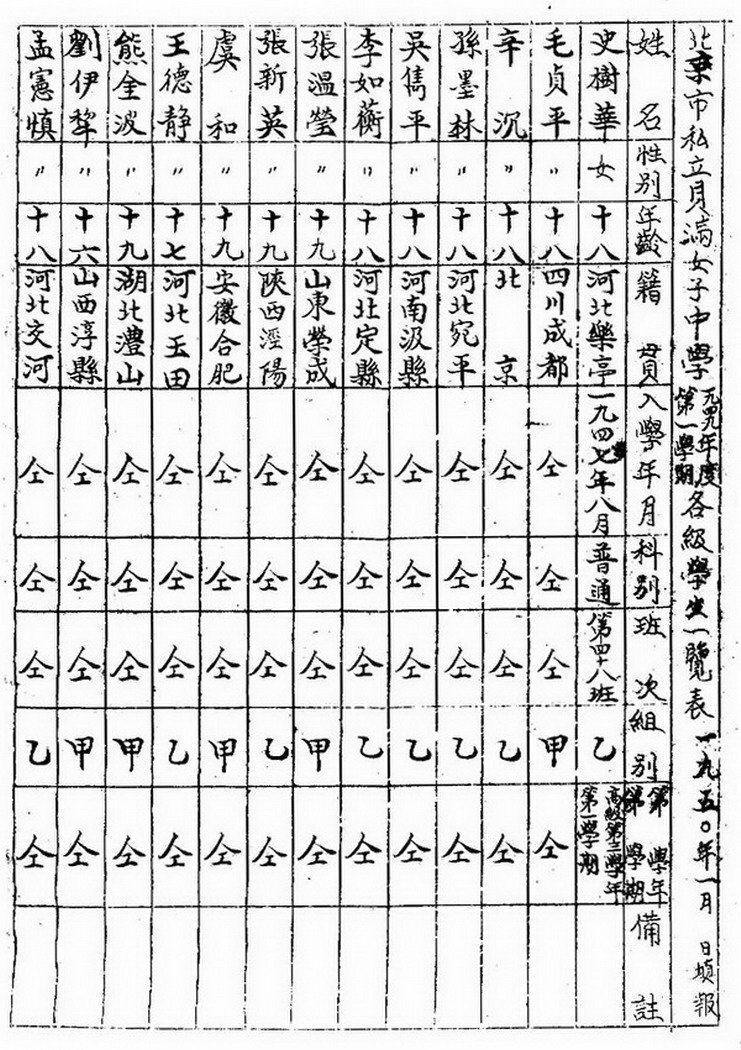 北京市私立貝滿女子中學一九四九年度第一學期各級學生一覽表 一九五〇年一月 日填報
姓名 性別 年齡 籍貫 入學年月 科別 班次 組別 第 學年第 學期 備註
史樹華 女 十八 河北樂亭 一九四七年八月 普通 第四十八班 乙 高級第三學年第一學期
毛貞平 〃 十八 四川成都 仝 仝 仝 甲 仝
辛沉 〃 十八 北京 仝 仝 仝 乙 仝
孫墨林 〃 十八 河北宛平 仝 仝 仝 乙 仝
吳雋平 〃 十八 河南汲縣 仝 仝 仝 乙 仝
李如蘅 〃 十八 河北定縣 仝 仝 仝 乙 仝
張溫瑩 〃 十九 山東榮成 仝 仝 仝 甲 仝
張新英 〃 十九 陝西涇陽 仝 仝 仝 乙 仝
虞和 〃 十九 安徽合肥 仝 仝 仝 甲 仝
王德静 〃 十七 河北玉田 仝 仝 仝 乙 仝
熊金波 〃 十九 湖北澧山 仝 仝 仝 甲 仝
劉伊犂 〃 十六 山西淳縣 仝 仝 仝 甲 仝
孟憲慎 〃 十八 河北交河 仝 仝 仝 乙 仝